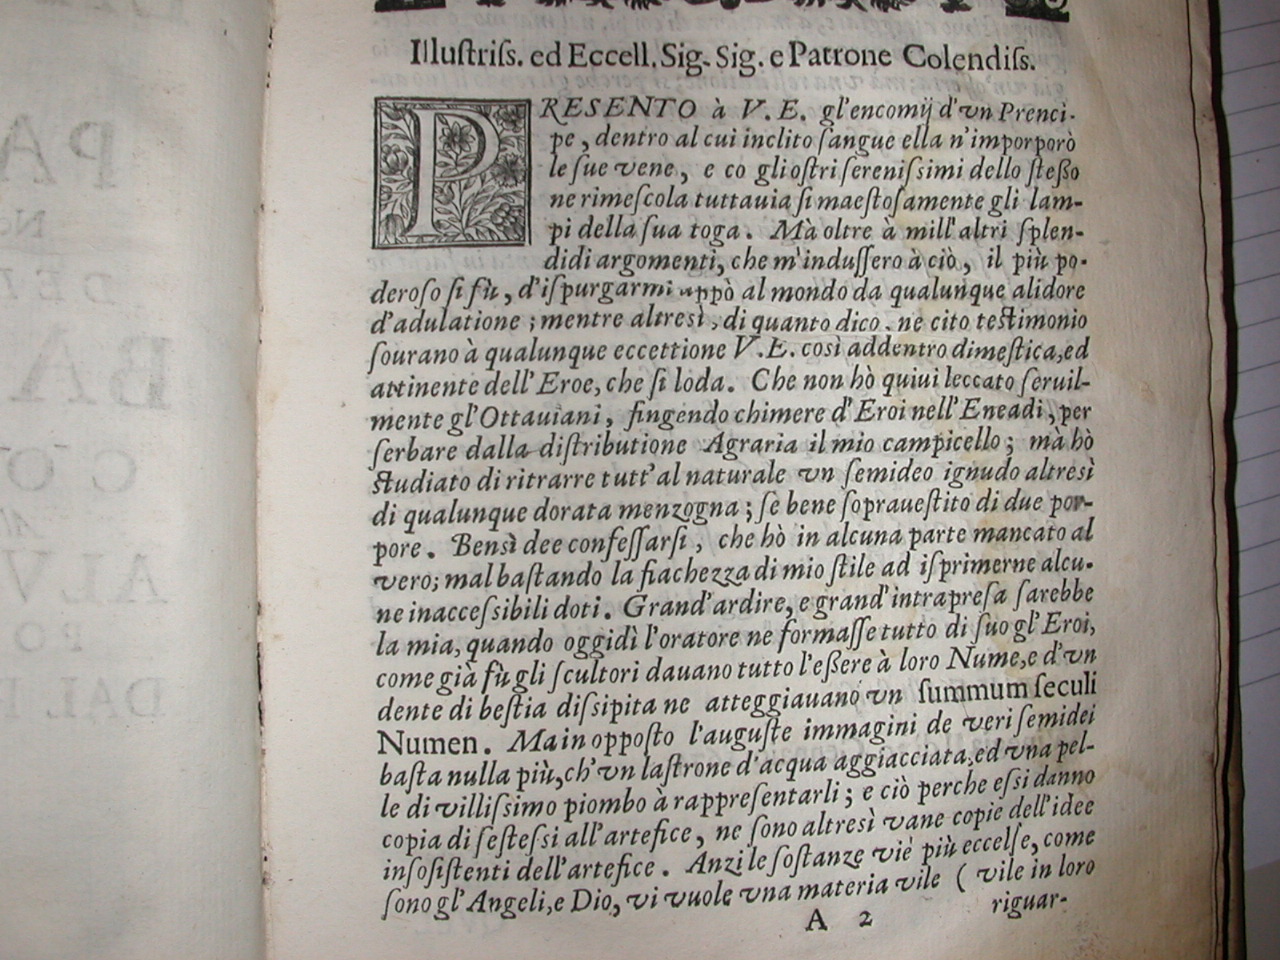 Illuſtriſs. ed Eccell. Sig. Sig. e Patrone Colendiſs.
PRESENTO à V. E. gl'encomij d'vn Prenci-
pe, dentro al cui inclito ſangue ella n'imporporò
le ſue vene, e co gli oſtri ſereniſsimi dello ſteſſo
ne rimeſcola tuttauia ſi maeſtoſamente gli lam-
pi della ſua toga. Mà oltre à mill'altri ſplen-
didi argomenti, che m'induſſero à ciò, il più po-
deroſo ſi fù, d'iſpurgarmi appò al mondo da qualunque alidore
d'adulatione; mentre altresì, di quanto dico, ne cito teſtimonio
ſourano à qualunque eccettione V. E. così addentro dimeſtica, ed
attinente dell'Eroe, che ſi loda. Che non hò quiui leccato ſeruil-
mente gl'Ottauiani, fingendo chimere d'Eroi nell'Eneadi, per
ſerbare dalla diſtributione Agraria il mio campicello; mà hò
ſtudiato di ritrarre tutt'al naturale vn ſemideo ignudo altresì
di qualunque dorata menzogna; ſe bene ſopraueſtito di due por-
pore. Bensì dee confeſſarſi, che hò in alcuna parte mancato al
vero; mal baſtando la fiachezza di mio ſtile ad iſprimerne alcu-
ne inacceſsibili doti. Grand'ardire, e grand'intrapreſa ſarebbe
la mia, quando oggidì l'oratore ne formaſſe tutto di ſuo gl'Eroi,
come già fù gli ſcultori dauano tutto l'eſſere à loro Nume, e d'vn
dente di beſtia diſsipita ne atteggiauano vn ſummum ſeculi
Numen. Ma in oppoſto l'auguſte immagini de veri ſemidei
baſta nulla più, ch'vn laſtrone d'acqua aggiacciata, ed vna pel-
le di villiſsimo piombo à rappreſentarli; e ciò perche eſsi danno
copia di ſeſteſsi all'artefice, ne ſono altresì vane copie dell'idee
inſoſiſtenti dell'artefice. Anzi le ſoſtanze viè più eccelſe, come
ſono gl'Angeli, e Dio, vi vuole vna materia vile ( vile in loro
A 2 riguar-